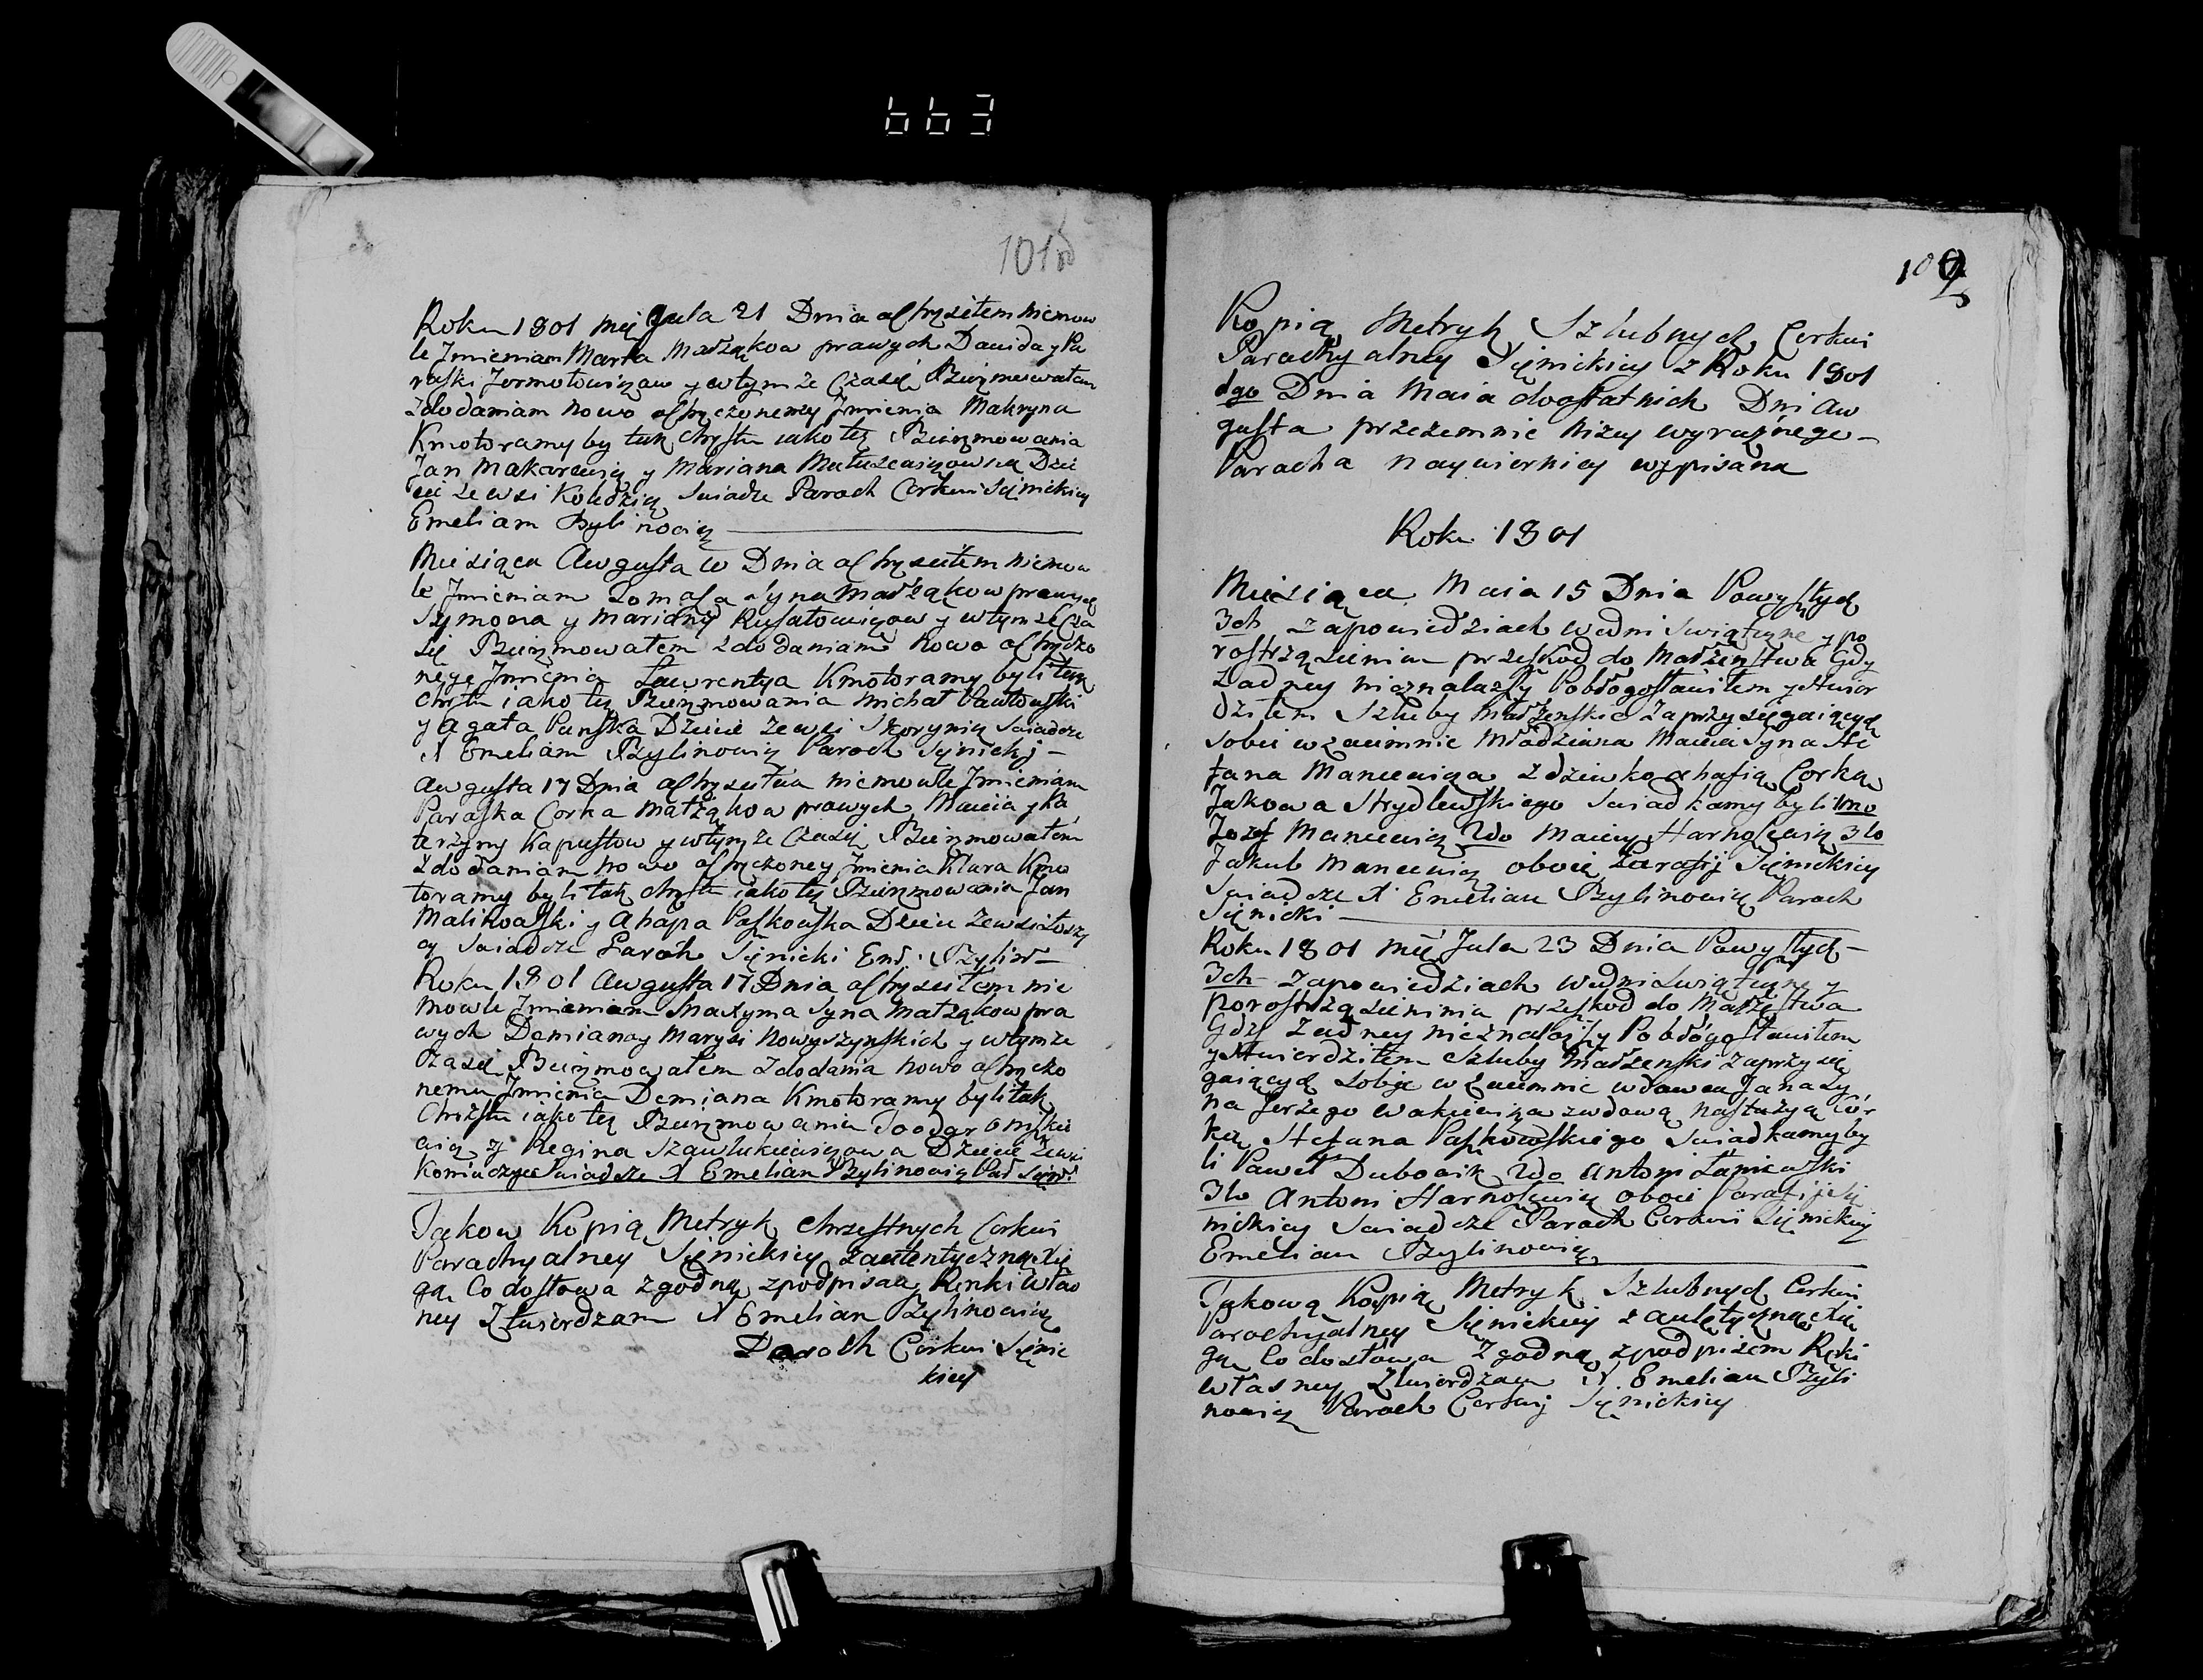 663
101
Roku 1801 mię Jula 21 Dnia ochrzciłem niemow
le Jmieniam Marta Małżąkow prawych Dawida y Pa
raski Jermołowiczow y wtymże Czasię Bierzmowałem
zdodaniam nowo ochrzczonemy Jmienia Makryna
Kmotoramy by tak chrztu iako też Bierzmowania
Jan Makarewicz y Mariana Matuszewiczowna Dzie
cie ze wsi Kołedzicz Swiadcze Paroch Cerkwi Sięnickiey
Emeliam Bylinowicz
Miesiąca Augusta w Dnia ochrzciłem niemow
le Jmieniam Tomasza syna Małżąkow prawych
Szymona y Mariany y wtymże Cza
się Bierzmowałem zdodaniam nowo ochrzczo
nego Jmienia Lawrentya Kmotoramy byli tak
chrztu iako też Bierzmowania Michał Pawłowski
y Agata Punska Dziecie zewsi Skorynicz Swiadcze
X Emeliam Bylinowicz Paroch Sięnickj
Augusta 17 Dnia ochrzciłem niemowle Jmieniam
Paraska Corka Małżąkow prawych Macieia y Ka
terzyny Kapustow y wtymże Czasię Bierzmowałem
zdodaniam nowo ochrzczoney Jmienia Klara Kmo
toramy byli tak chrztu iako też Bierzmowania Jan
Malikowski y Ahapa Paskowska Dziecie zewsi Łoszy
cy Swiadcze Paroch Sięnicki Em. Bylin
Roku 1801 Augusta 17 Dnia ochrzciłem nie
mowle Jmieniam Maxyma Syna Małżąkow pra
wych Demiana y Marysi Nowoszynskich y wtymże
Czasię Bierzmowałem zdodania nowo ochrzczo
nemu Jmienia Demiana Kmotoramy byli tak
Chrztu iako też Bierzmowania
wicz y Regina Szawlukiewiczowa Dziecie zewsi
Swiadcze X Emelian Bylinowicz Par Sięn
Takow Kopią Metryk chrzestnych Cerkwi
Parachyalney Sięnickiey zautentyczną Xię
gą Co dosłowa zgodną zpodpisam Ręnki Włas
ney Ztwierdzam X Emelian Bylinowicz
Paroch Cerkwi Sięnic
kiey
102
Kopią Metryk Szlubnych Cerkwi
Parachyalney Sięnickiey z Roku 1801
1go Dnia Maia doostatnich Dni Aw
gusta przezemnie niżey wyrażnego
Paracha naywierniey wypisana
Roku 1801
Miesiąca Maia 15 Dnia Powyszłych
3ch zapowiedziach wedni swiąteczne y po
rostrząsieniu przeszkod do Małżenstwa Gdy
żadney nieznalazszy Pobłogosławiłem y stwier
dziłem Szluby Małżenskie zaprzysięgaiących
sobie wzaiemnie Młodziana Macieia Syna Ste
fana Mancewicza zdziewko Ahafią Corką
Jakowa Strydlewskiego Swiadkamy byli 1mo
Jozef Mancewicz 2do Maciey Harnosewicz 3tio
Jakub Mancewicz oboie Parafij Sięnickiey
Swiadcze X Emelian Bylinowicz Paroch
Sięnicki
Roku 1801 mię Jula 23 Dnia Powyszłych
3ch zapowiedziach wedni Swiąteczne y
porostrząsieninia przeszkod do Małżęstwa
Gdy żadney nieznalazszy Pobłogosławiłem
y stwierdziłem Szluby Małżenski zaprzysię
gaiących sobie wzaiemnie wdowca Jana Sy
na Jerzego Wakiewicza zwdową Nastazyą Cór
ką Stefana Paszkowskiego Swiadkamy by
li Paweł Dubowik 2do Antoni Łapicwski
3tio Antoni Harnosewicz oboie Parafij Się
nickiey Swiadcze Paroch Cerkwi Sięnickiey
Emelian Bylinowicz
Takową Kopią Metryk Szlubnych Cerkwi
Parochyalney Sięnickiey zautętyczną Xię
gą Co dosłowa Zgodną zpodpisem Ręki
własney Ztwierdzam X Emelian Byli
nowicz Paroch Cerkwj Sięnickiey